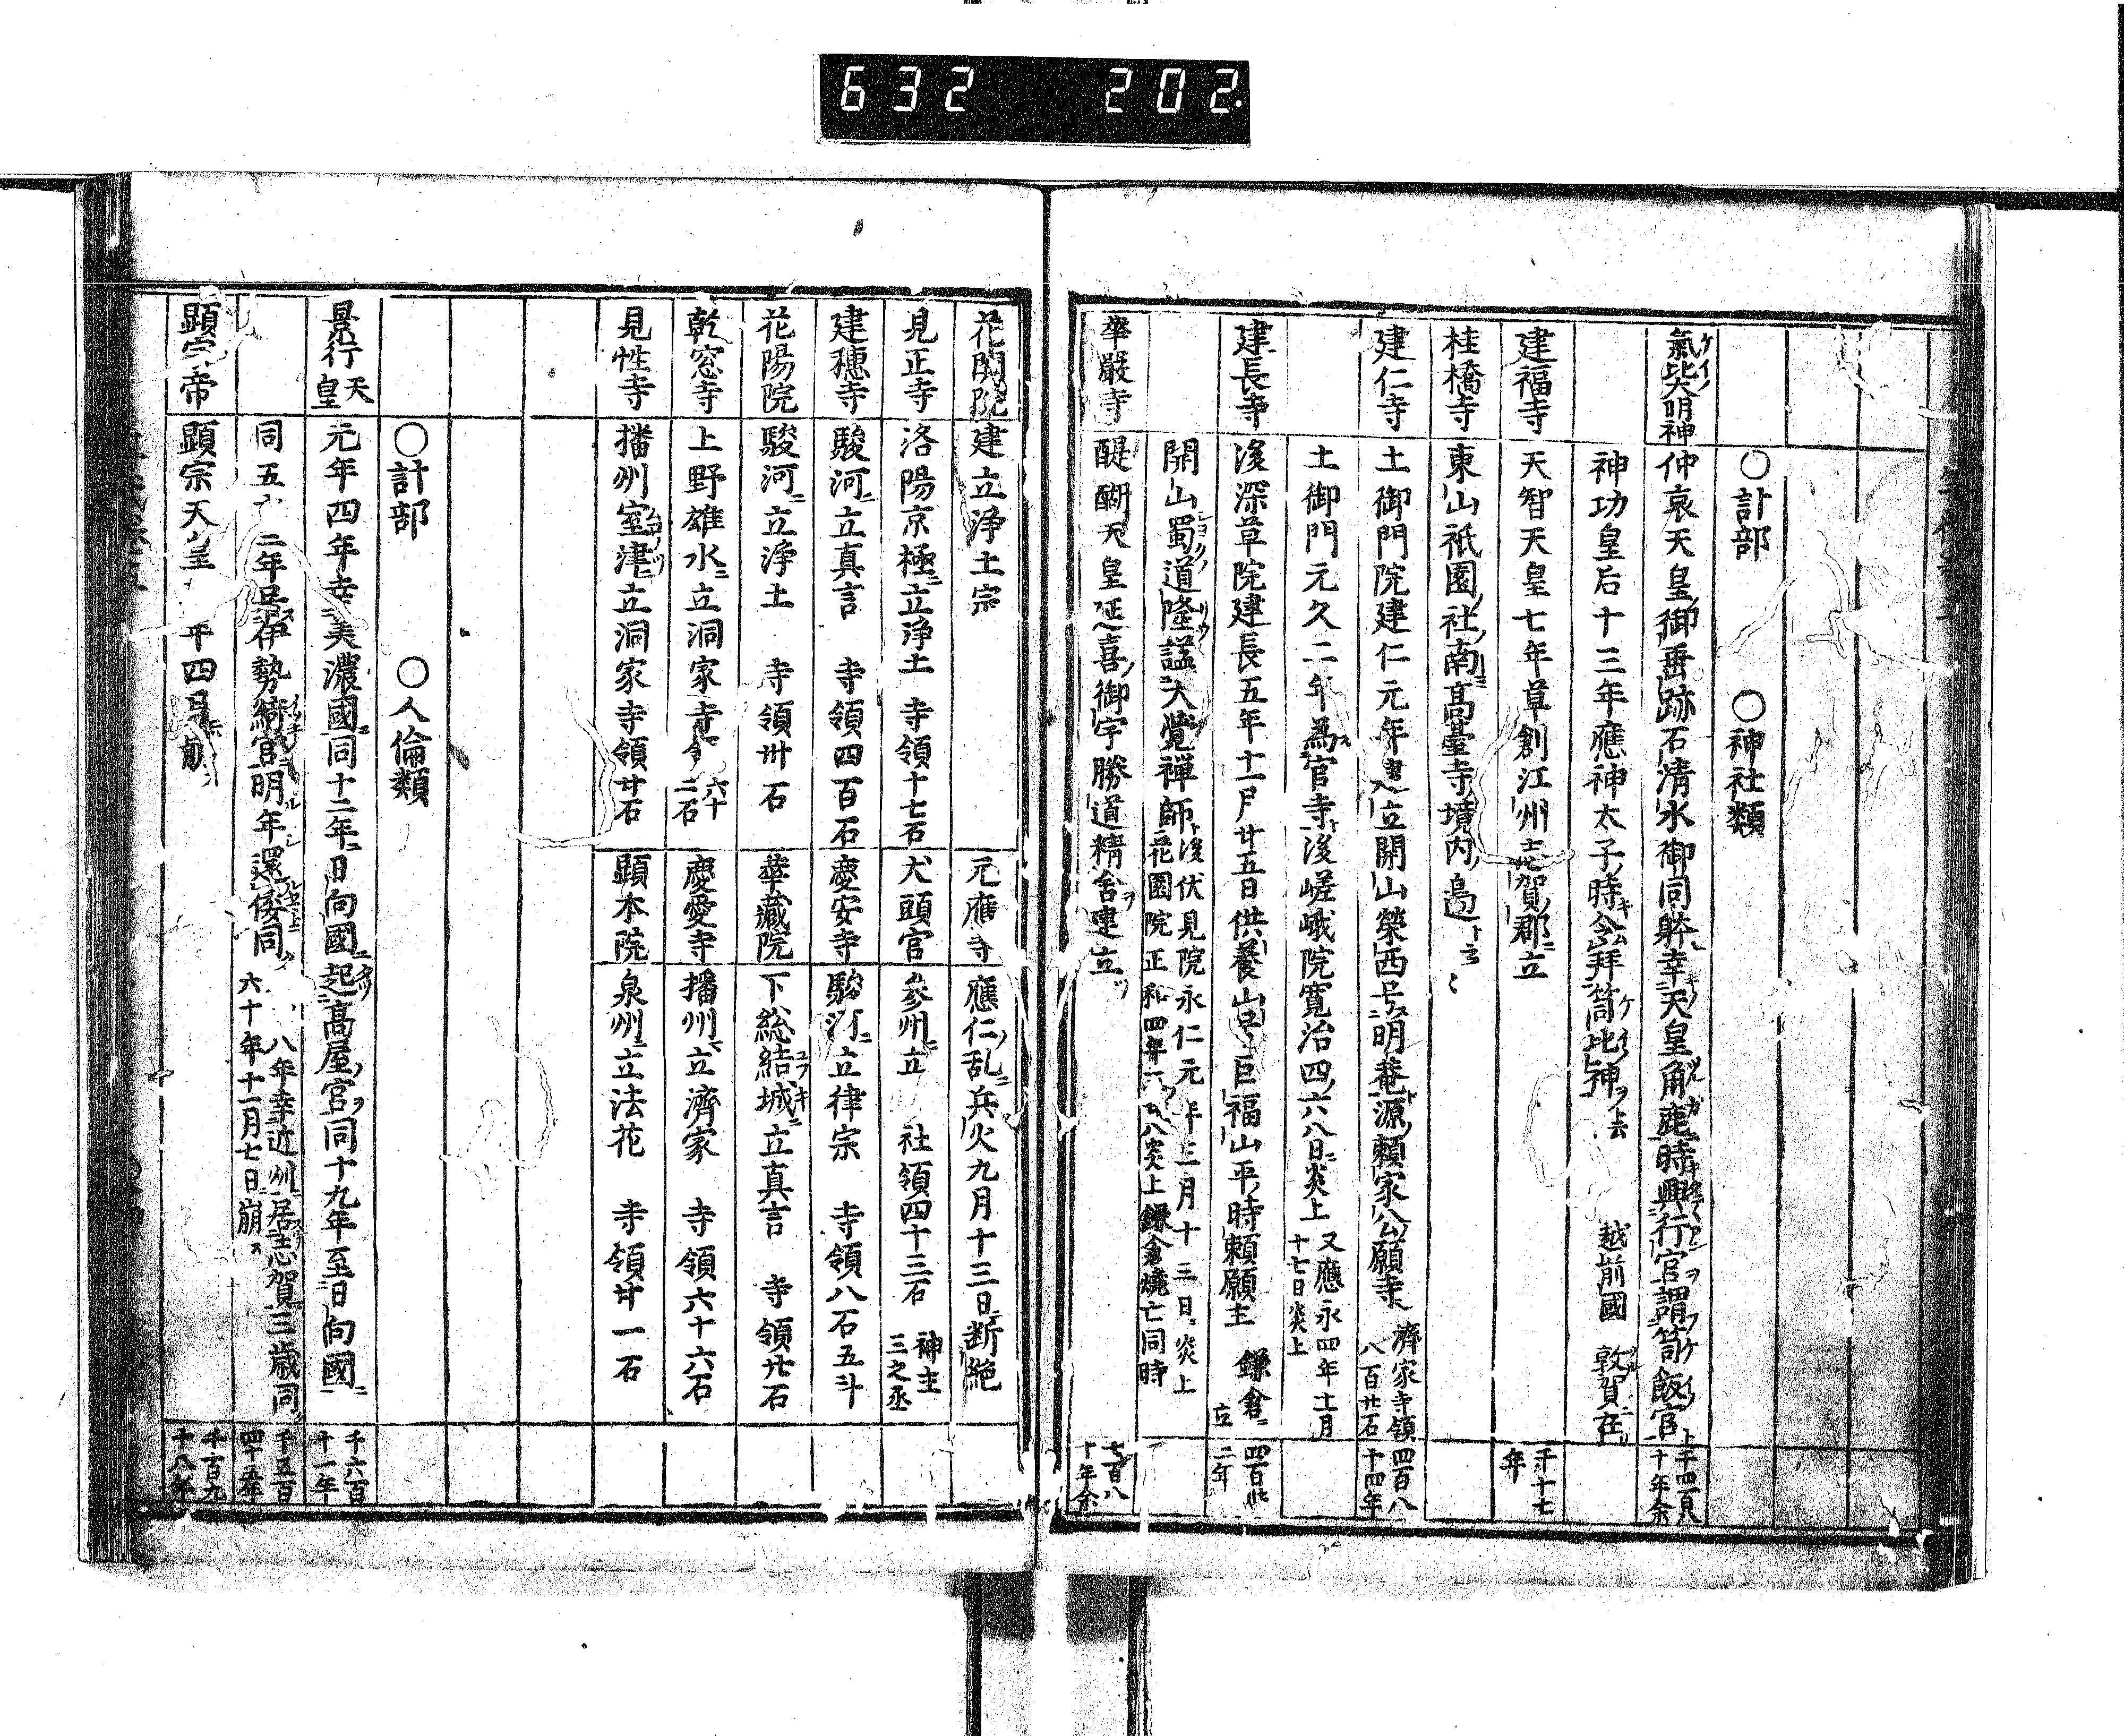 632 202.
○計部 ○神社類
氣比大明神 仲哀天皇御垂跡石清水御同躰幸天皇角鹿時興行宮謂笥飯宮 上千四百十年余
神功皇后十三年應神太子時令拜笥比神ヲ云 越前國 敦賀在
建福寺 天智天皇七年草創江州志賀郡ニ立 千十七年
桂橋寺 東山祇園社南高臺寺境内邉ト云〻
建仁寺 土御門院建仁元年建立開山榮西号明菴源頼家公願寺 濟家寺領八百廿石 四百八十四年
土御門元久二年為官寺後嵯峨院寛治四六八日炎上 又應永四年十一月十七日炎上
建長寺 後深草院建長五年十一月廿五日供養山号巨福山平時頼願主 鎌倉ニ立 四百卅二年
開山蜀道隆謚大覚禅師 後伏見院永仁元年三月十三日炎上 花園院正和四年 八炎上鎌倉燒亡同時
華嚴寺 醍醐天皇延喜御宇勝道精舎建立 七百八十年余
花開院 建立浄土宗 元應寺 應仁乱兵火九月十三日断絶
見正寺 洛陽京極ニ立浄土 寺領十七石 犬頭宮 参州ニ立 社領四十三石 神主三之丞
建穗寺 駿河ニ立真言 寺領四百石 慶安寺 駿河ニ立律宗 寺領八石五斗
花陽院 駿河ニ立浄土 寺領卅石 華藏院 下総結城ニ立真言 寺領廿石
乾窓寺 上野雄水ニ立洞家寺 六十二石 慶愛寺 播州ニ立濟家 寺領六十六石
見性寺 播州室津ニ立洞家寺領廿石 顕本院 泉州ニ立法花 寺領廿一石
○計部 ○人倫類
景行天皇 元年四年幸美濃國同十二年日向國ニ起高屋宮同十九年至日向國ニ 千六百十一年
同五十二年 伊勢綺宮明年還倭同 八年幸近州居志賀三歳同六十年十一月七日崩 千五百四十五年
顕宗帝 顕宗天皇 年四月 崩 千百九十八年